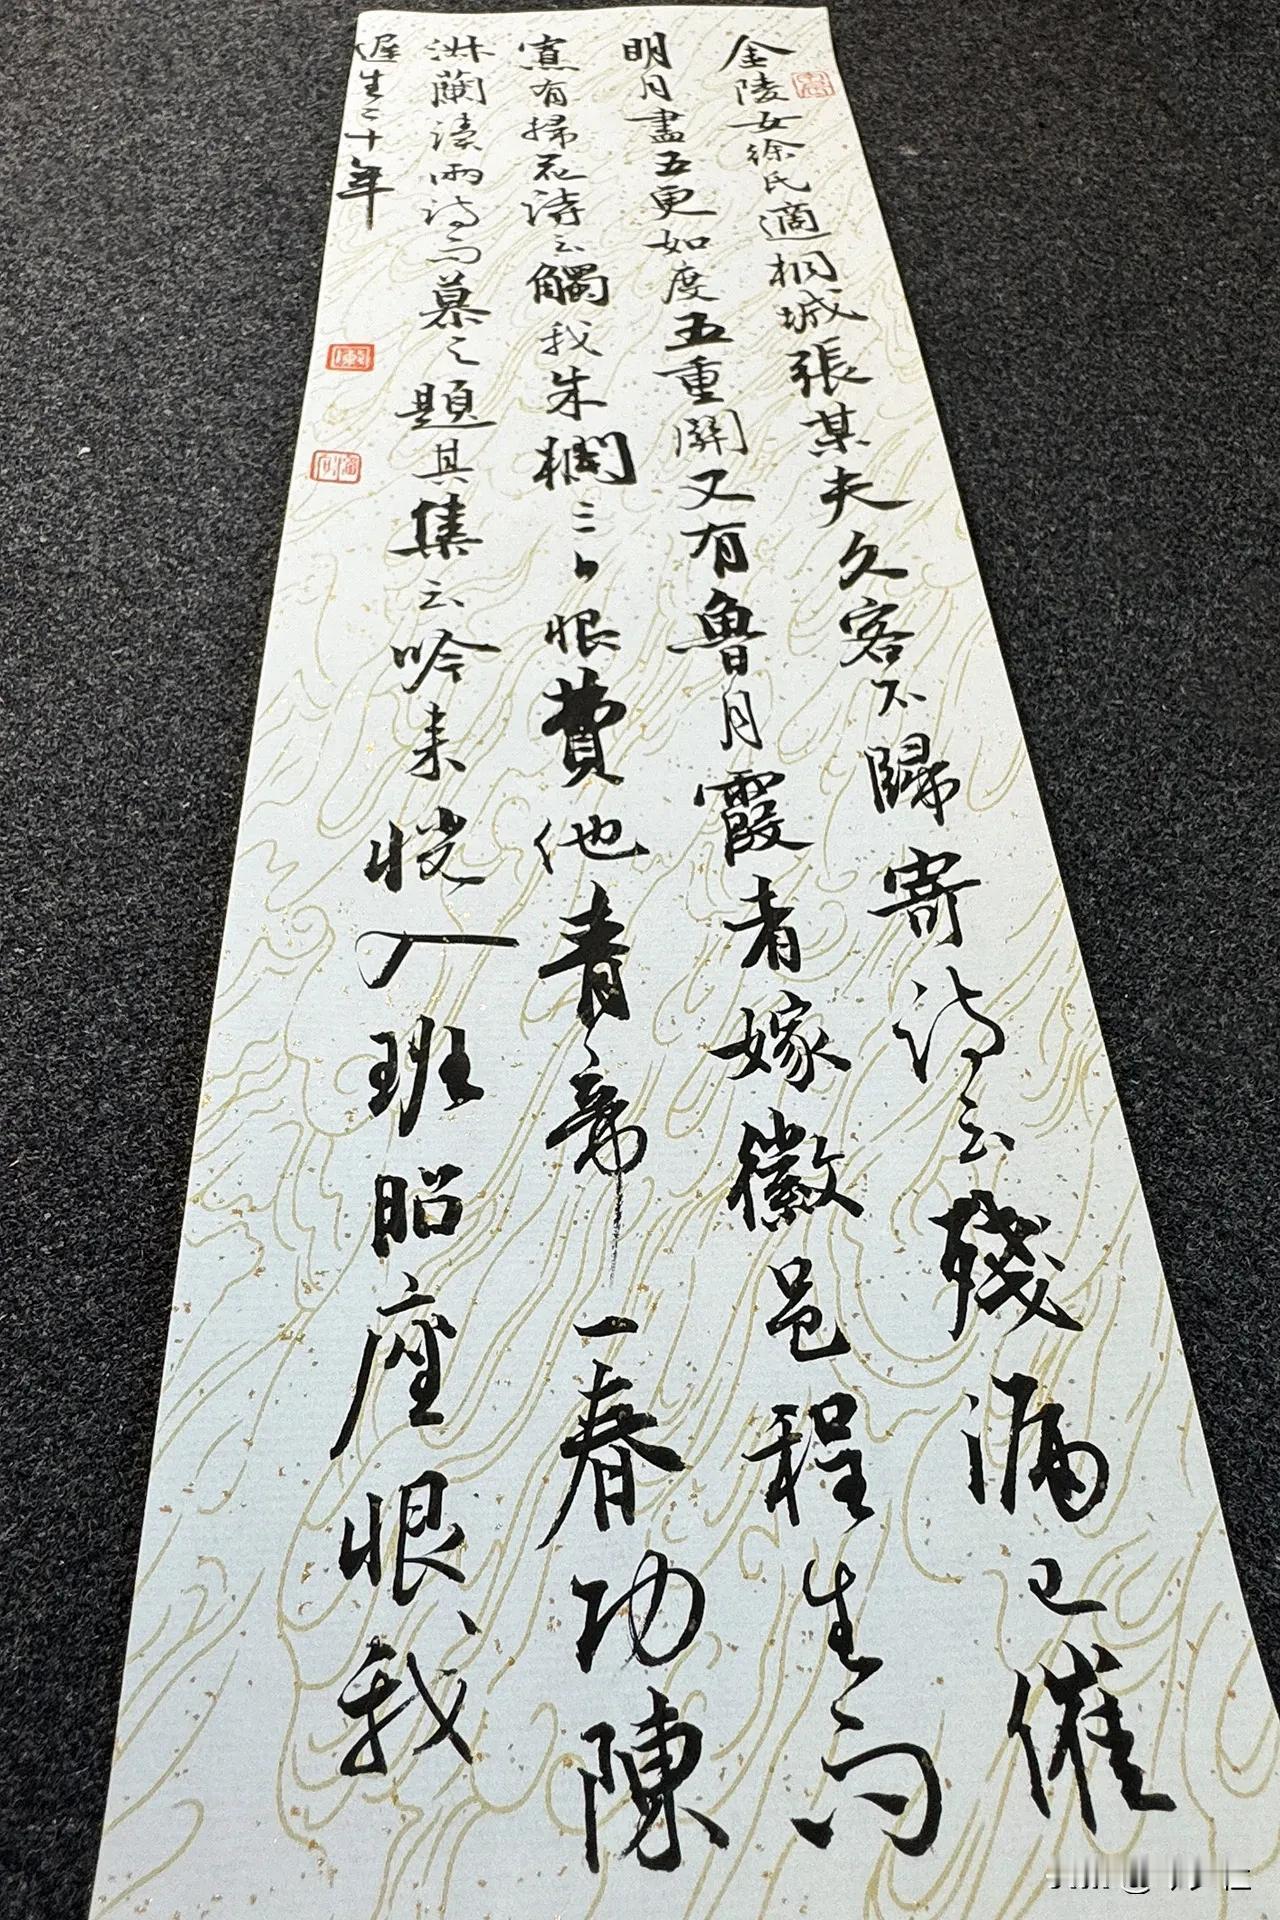 金陵女徐氏適桐城張某夫久客不歸寄詩云殘漏已催
明月盡五更如度五重關又有魯月霞者嫁徽邑程生而
寡有掃花詩云觸我朱欄三日恨費他青帝一春功陳
淑蘭讀兩詩而慕之題其集云吟来恍入班昭座恨我
遲生二十年